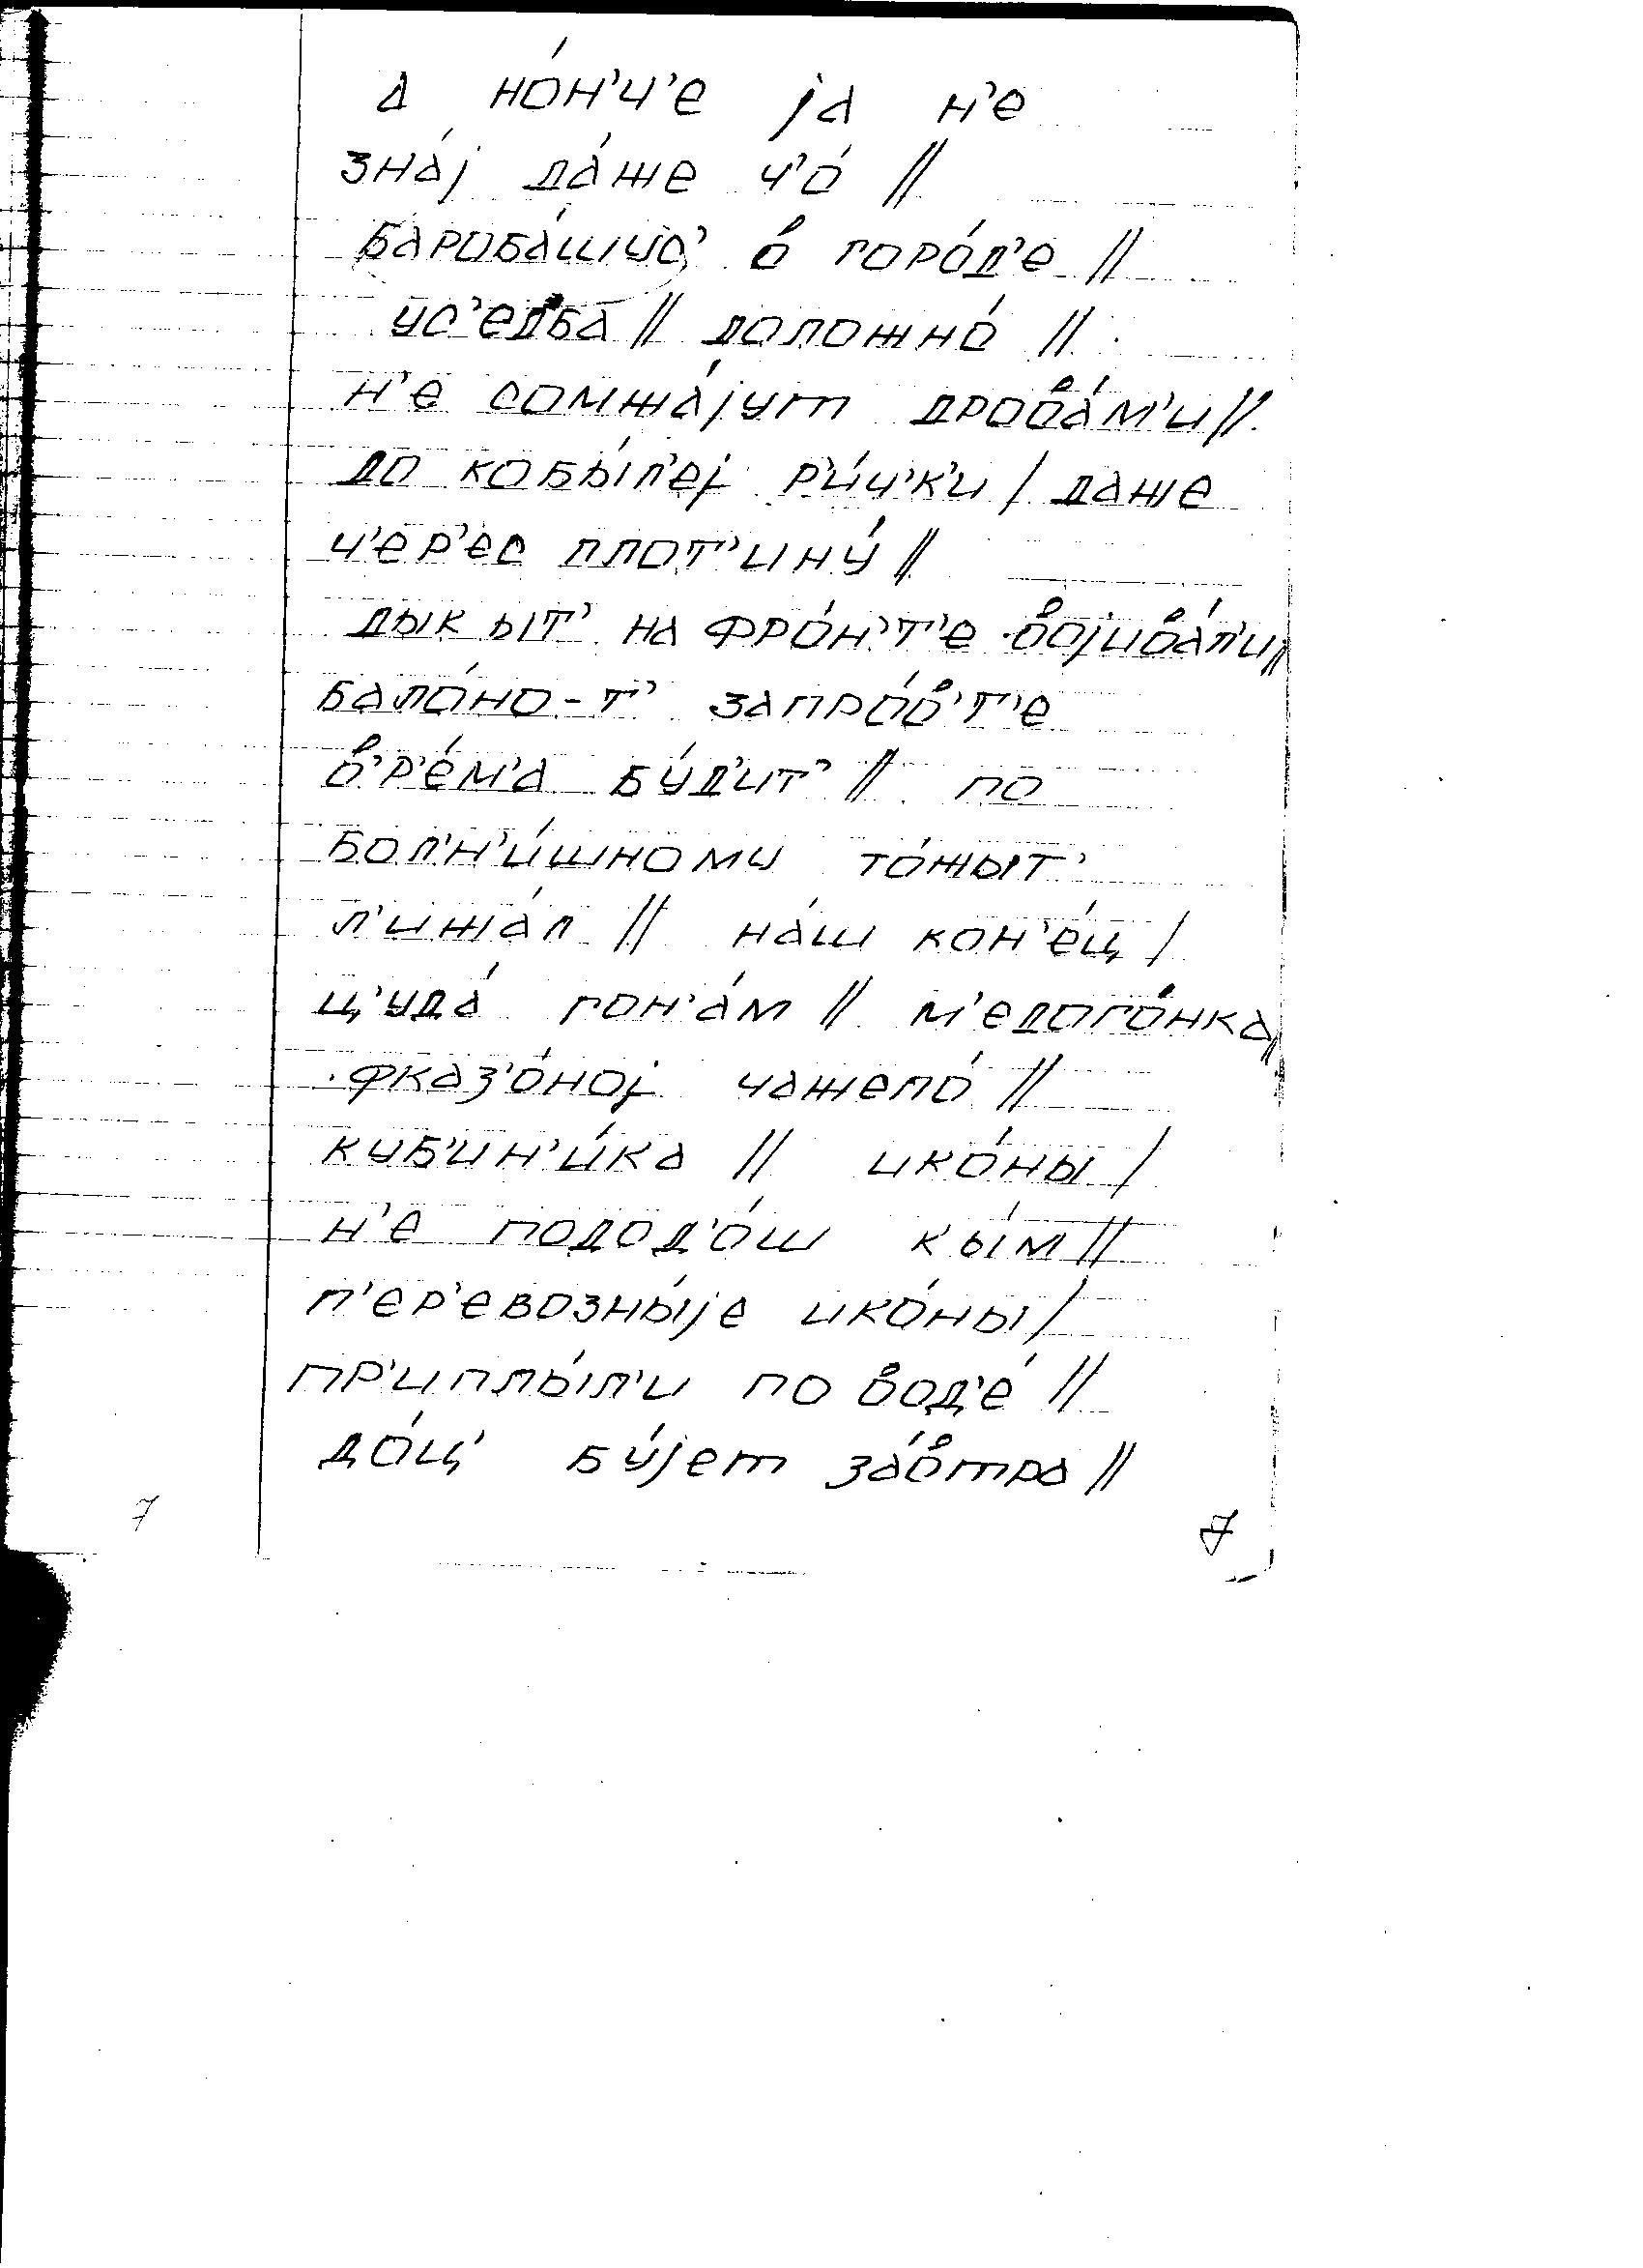 а но́н'ч'е jа н'е
зна́j да́же ч'о́ //
баробашус' в горо́д'е //
ус'едба // доложно́ //
н'е сомжа́jут дрова́м'и //
до кобы́л'еj р'и́ч'к'и / даже
ч'ер'ес плот'ину́ //
дык ыт' на фро́н'т'е воjива́л'и //
бало́но-т' запро́в'т'е
в'р'е́м'а бу́д'ит' // по
бол'н'и́шному то́жыт'
л'ижа́л // на́ш кон'е́ц /
ц'уда́ гон'а́м // м'едого́нка //
фказ'о́ноj чажело́ //
куб'ин'и́ка // ико́ны /
н'е подод'о́ш к'ы́м //
п'ер'евозны́jе ико́ны /
пр'иплы́л'и по вод'е́ //
до́ц' бу́jет за́втра //
7 7